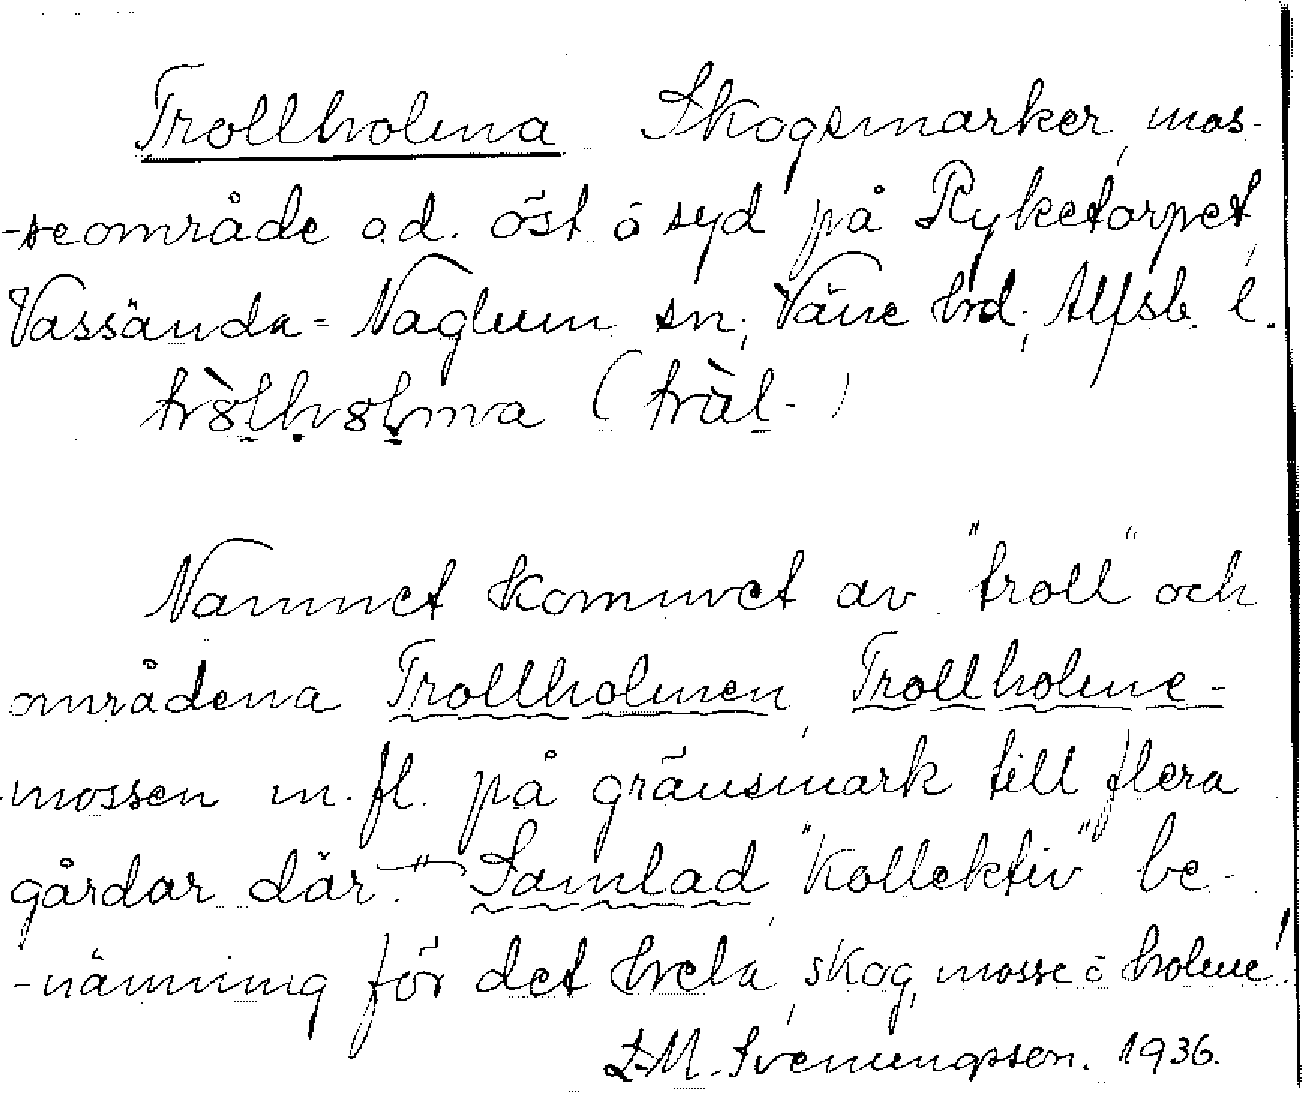 Trollholma Skogsmarker, mos-
-seområde o.d. öst ö syd på Ryketorpet,
Vassända-Naglum sn, Väne hrd, Älfsb. l.
(träl-)
Namnet kommet av "troll" och
områdena Trollholmen, Trollholme-
mossen m. fl. på gränsmark till flera
gårdar där." Samlad, "kollektiv" be-
-nämning för det hela, skog, mosse ö holme!
Svenungsson. 1936.